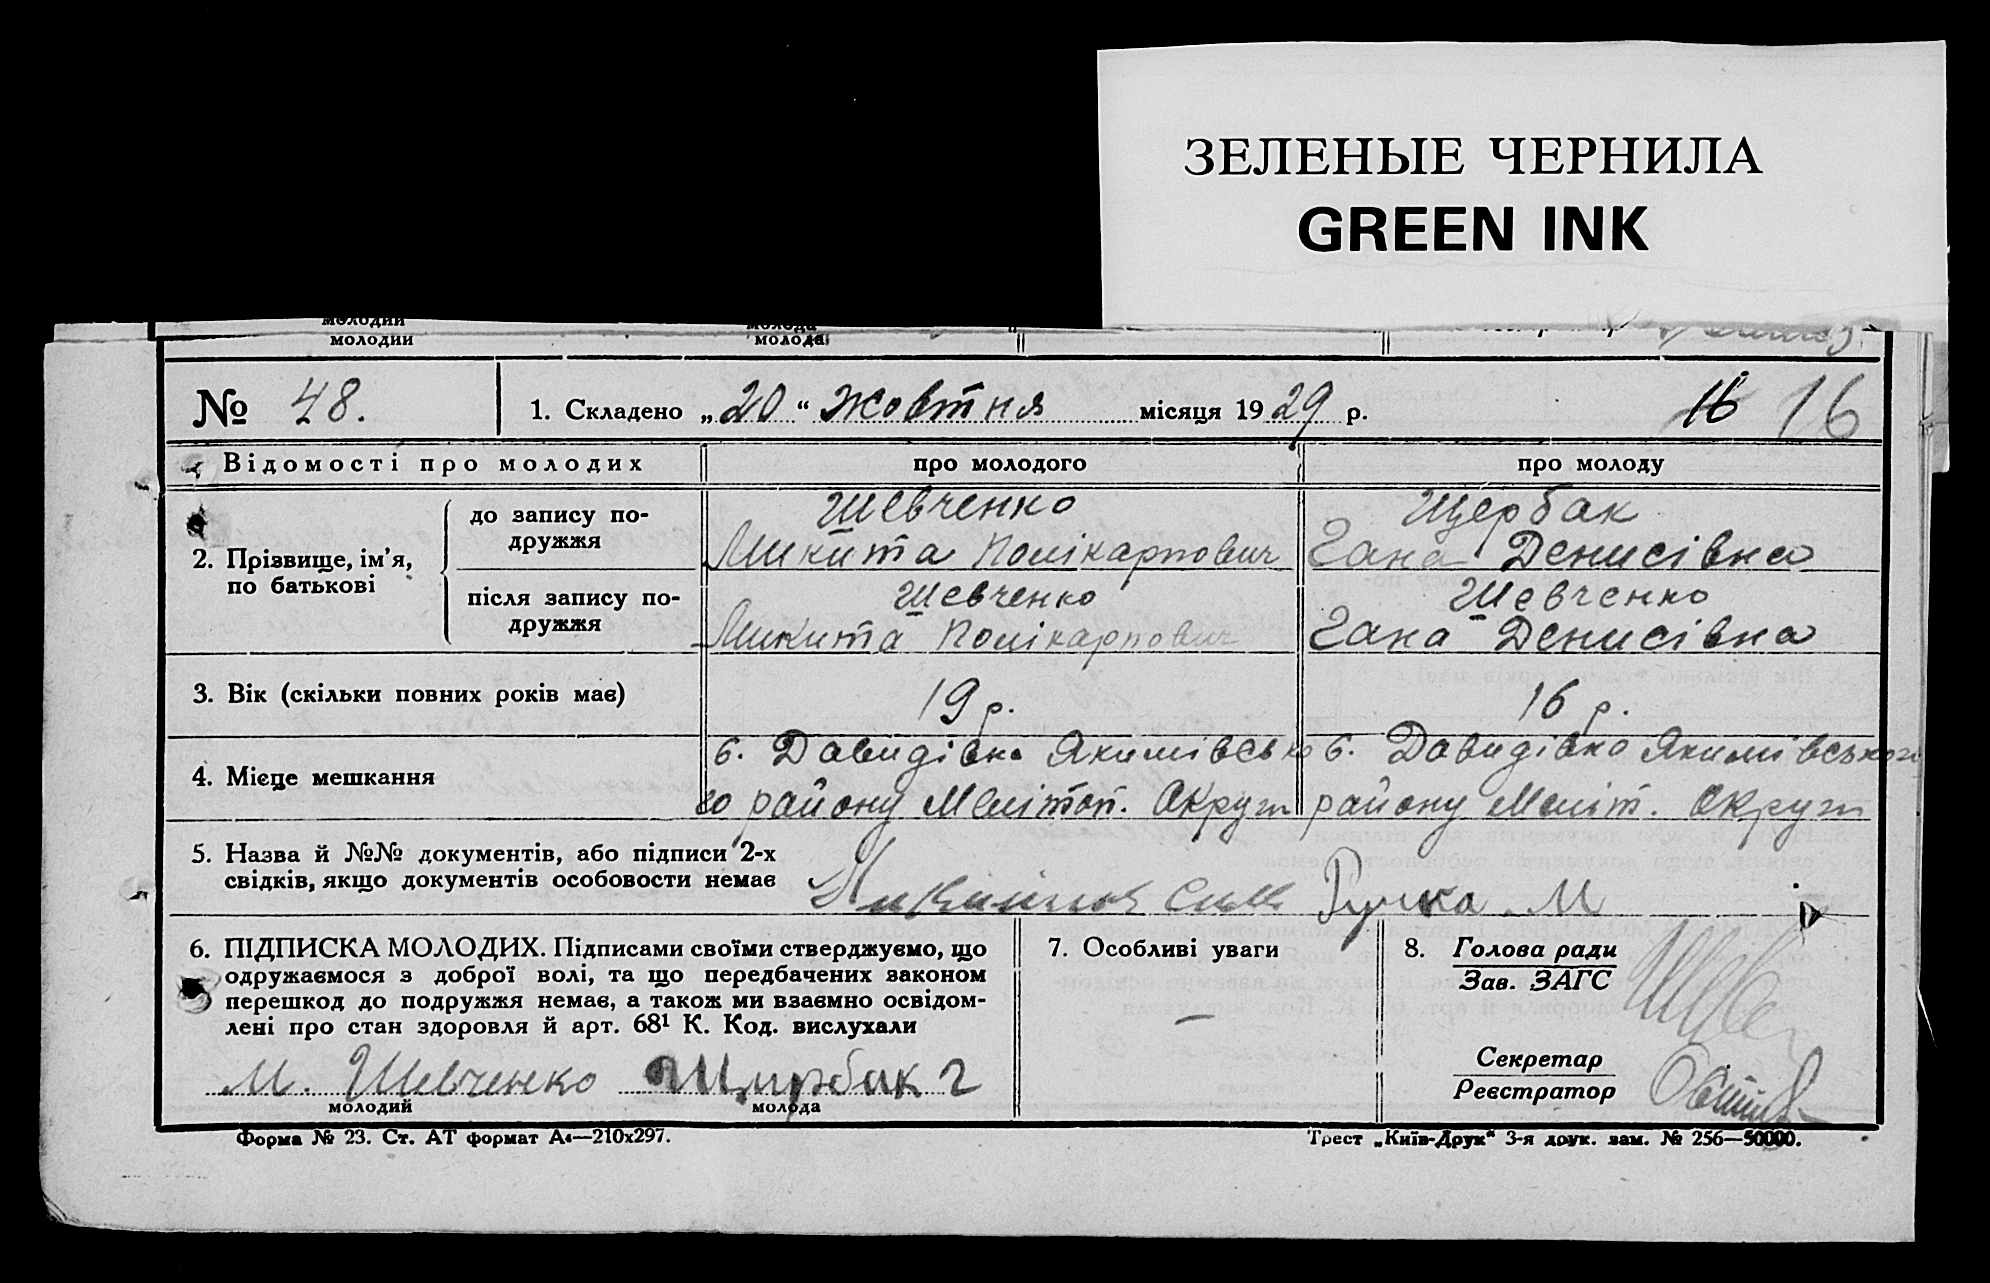 ЗЕЛЕНЫЕ ЧЕРНИЛА
GREEN INK
молодий
молода
молодий
молода
№ 48. 1. Складено „20“ жовтня місяця 1929 р. 16 16
Відомості про молодих про молодого про молоду
2. Прізвище, ім’я, по батькові
до запису подружжя
Шевченко
Микита Полікарпович
Щербак
Гана Денисівна
після запису подружжя
Шевченко
Микита Полікарпович
Шевченко
Гана Денисівна
3. Вік (скільки повних років має) 19 р. 16 р.
4. Місце мешкання
с. Давидівка Якимівсько
го району Мелітоп. Округи
с. Давидівка Якимівського
району Меліт. Округи
5. Назва й №№ документів, або підписи 2-х
свідків, якщо документів особовости немає
Ручка М
6. ПІДПИСКА МОЛОДИХ. Підписами своїми стверджуємо, що
одружаємося з доброї волі, та що передбачених законом
перешкод до подружжя немає, а також ми взаємно освідом-
лені про стан здоровля й арт. 68¹ К. Код. вислухали
М. Шевченко Щирбак Г
молодий молода
7. Особливі уваги
—
8. Голова ради
Зав. ЗАГС
Секретар
Реєстратор
Форма № 23. Ст. АТ формат А4—210х297.
Трест „Київ-Друк“ 3-я друк. зам. № 256—50000.